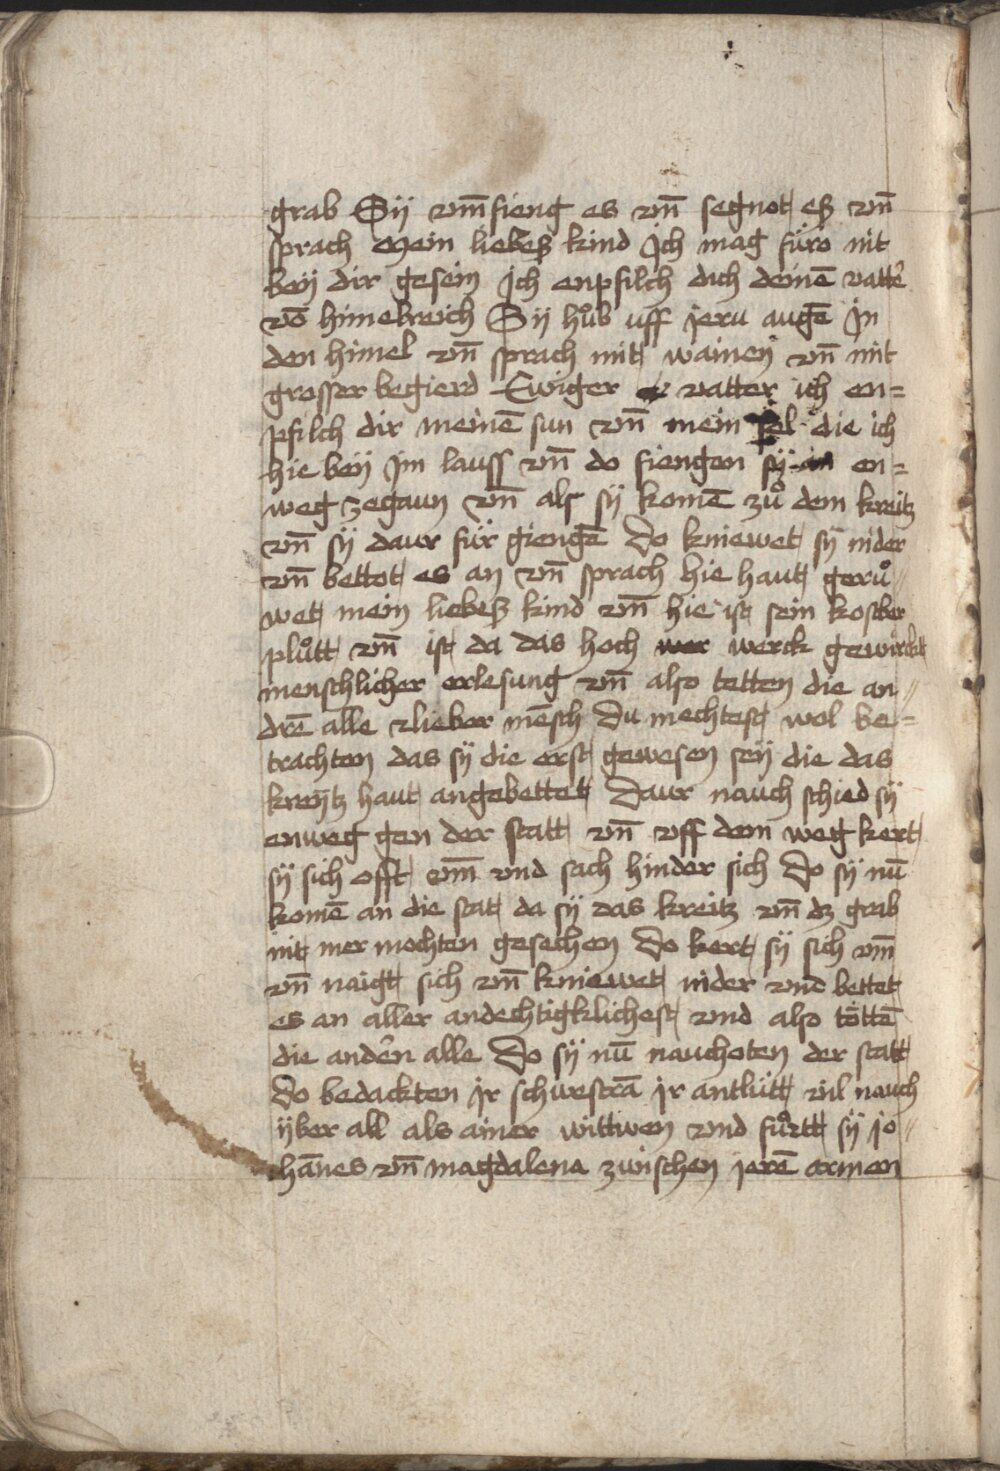 grab Sÿ vm̄fieng es vn̄ segnot eß vn̄
sprach Mein liebeß kind Ich mag füro nit
beÿ dir gesein Ich enpfilch dich deinē vatter
vō himelreich Sÿ hůb uff ieru augē In
den himel vn̄ sprach mit wainen vn̄ mit
grosser begierd Ewiger vatter ich en=
pfilch dir meinē sun vn̄ mein sel die ich
hie beÿ Im lauss vn̄ do fiengen sÿ an en=
weg zegaun vn̄ als sÿ komē zů dem kreitz
vn̄ sÿ daur für giengē Do kniewet sÿ nider
vn̄ bettot es an vn̄ sprach hie haut gerů//
wet mein liebeß kind vn̄ hie ist sein kostber
plůtt vn̄ ist da das hoch wer werck gewürckt
menschlicher erlesung vn̄ also tetten die an//
drē alle Lieber mēsch Du mechtest wol be=
trachten das sÿ die erst gewesen seÿ die das
kreÿtz haut angebettet Daur nauch schied sÿ
enweg gen der statt vn̄ vff dem weg kert
sÿ sich offt vm̄ vnd sach hinder sich Do sÿ nū
komē an die stat da sÿ das kreitz vn̄ dz grab
nit mer mochten gesechen Do kert sÿ sich vm̄
vn̄ naigt sich vn̄ kniewet nider vnd bettet
es an aller andechtigklichest vnd also töttē
die andern alle Do sÿ nū nauchoten der statt
Do bedackten Ir schwestrā Ir antlütt vil nauch
ÿber all als ainer wittwen vnd fůrtt sÿ Jo//
hānes vn̄ magdalena zwischen ierē armen